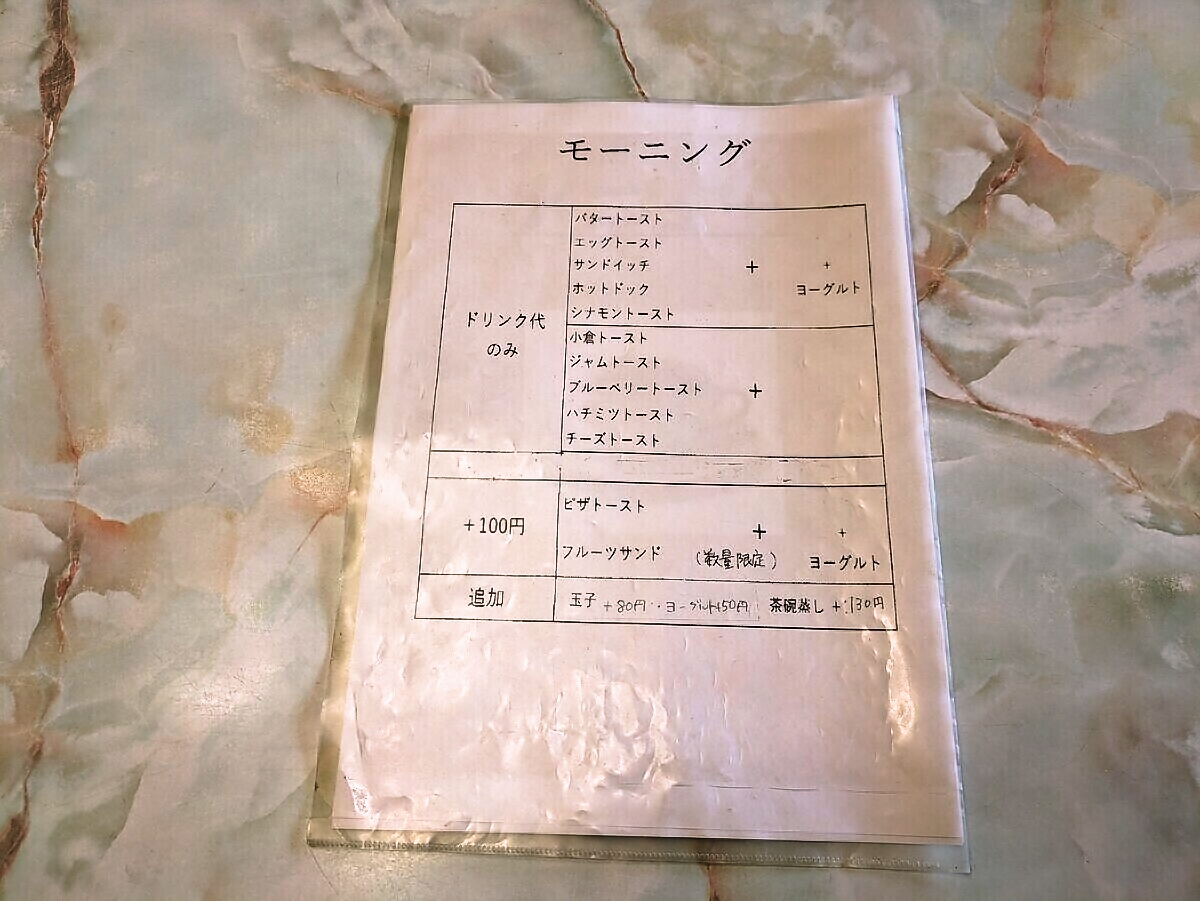 モーニング
ドリンク代
のみ
バタートースト
エッグトースト
サンドイッチ + +
ホットドック ヨーグルト
シナモントースト
小倉トースト
ジャムトースト
ブルーベリートースト +
ハチミツトースト
チーズトースト
+100円
ピザトースト
+ +
フルーツサンド (数量限定) ヨーグルト
追加
玉子 +80円・ヨーグルト+50円 茶碗蒸し +130円